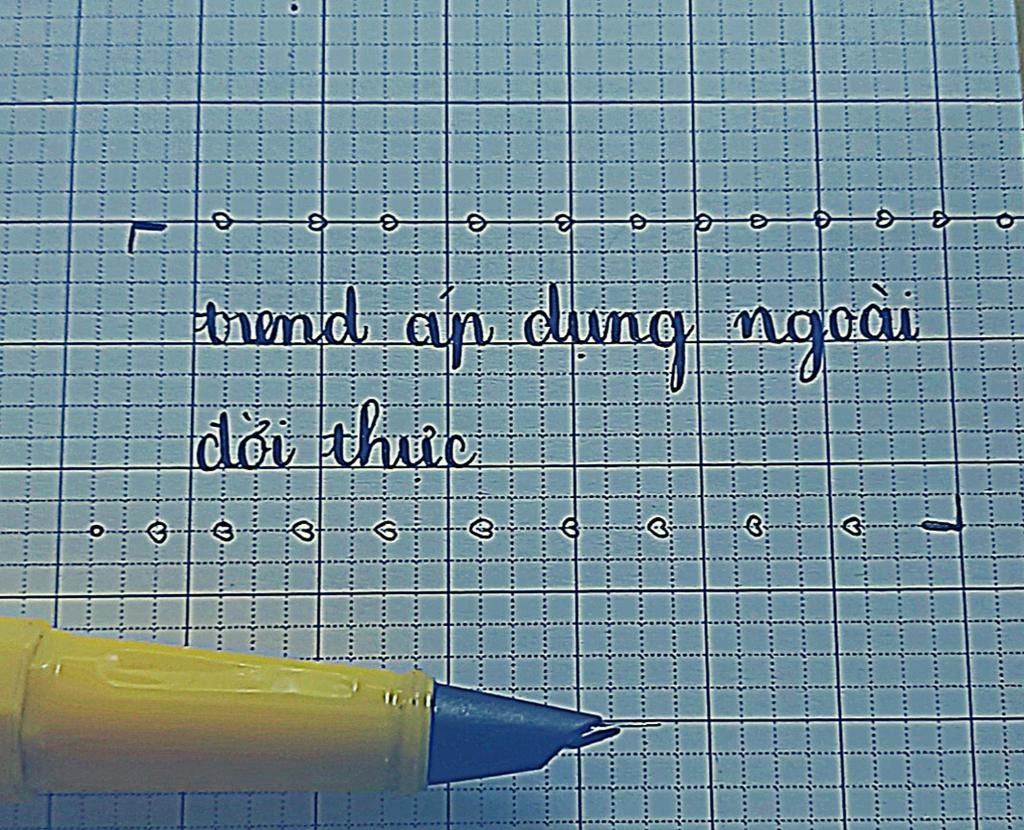 trend áp dụng ngoài
đời thực